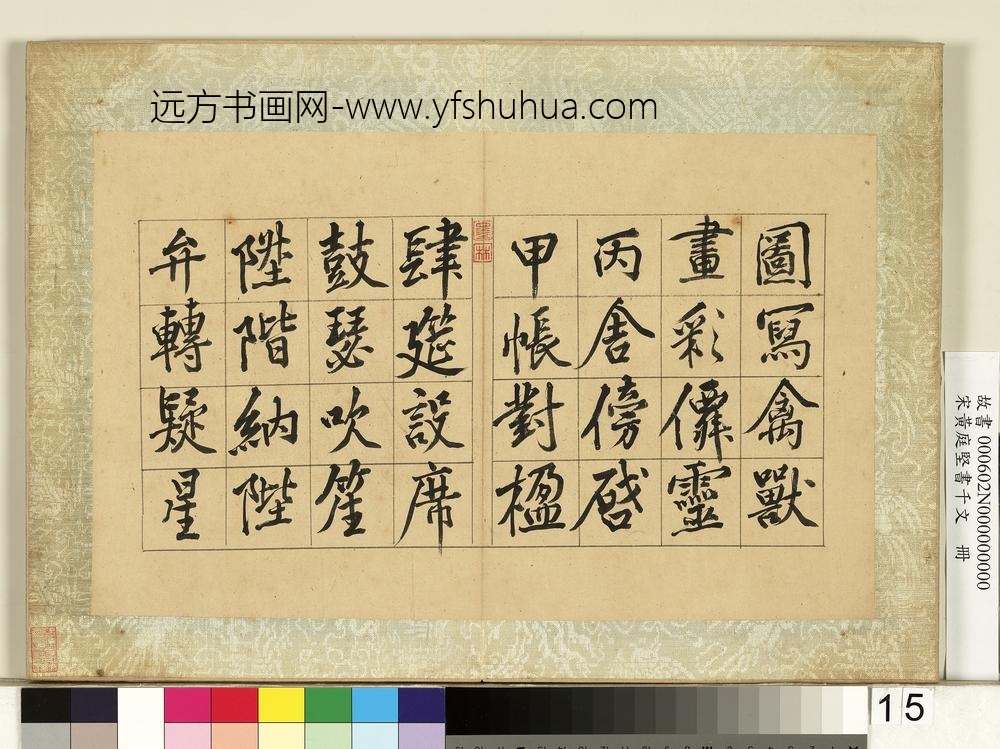 远方书画网-www.yfshuhua.com
圖寫禽獸
畫彩僊靈
丙舍傍啓
甲帳對楹
肆筵設席
鼓瑟吹笙
陞階納陛
弁轉疑星
故書 000602N000000000
宋黃庭堅書千文 冊
15